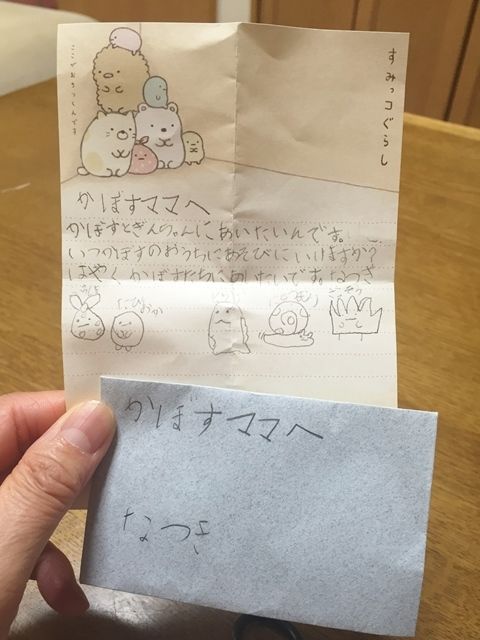 すみっコぐらし
ここがおちつくんです
かぼすママへ
かぼすとぎんちゃんにあいたいんです。
いつかぼすのおうちにあそびにいけますか?
はやくかぼすたちにあいたいです。なつき
たぴおか
かぼすママへ
なつき